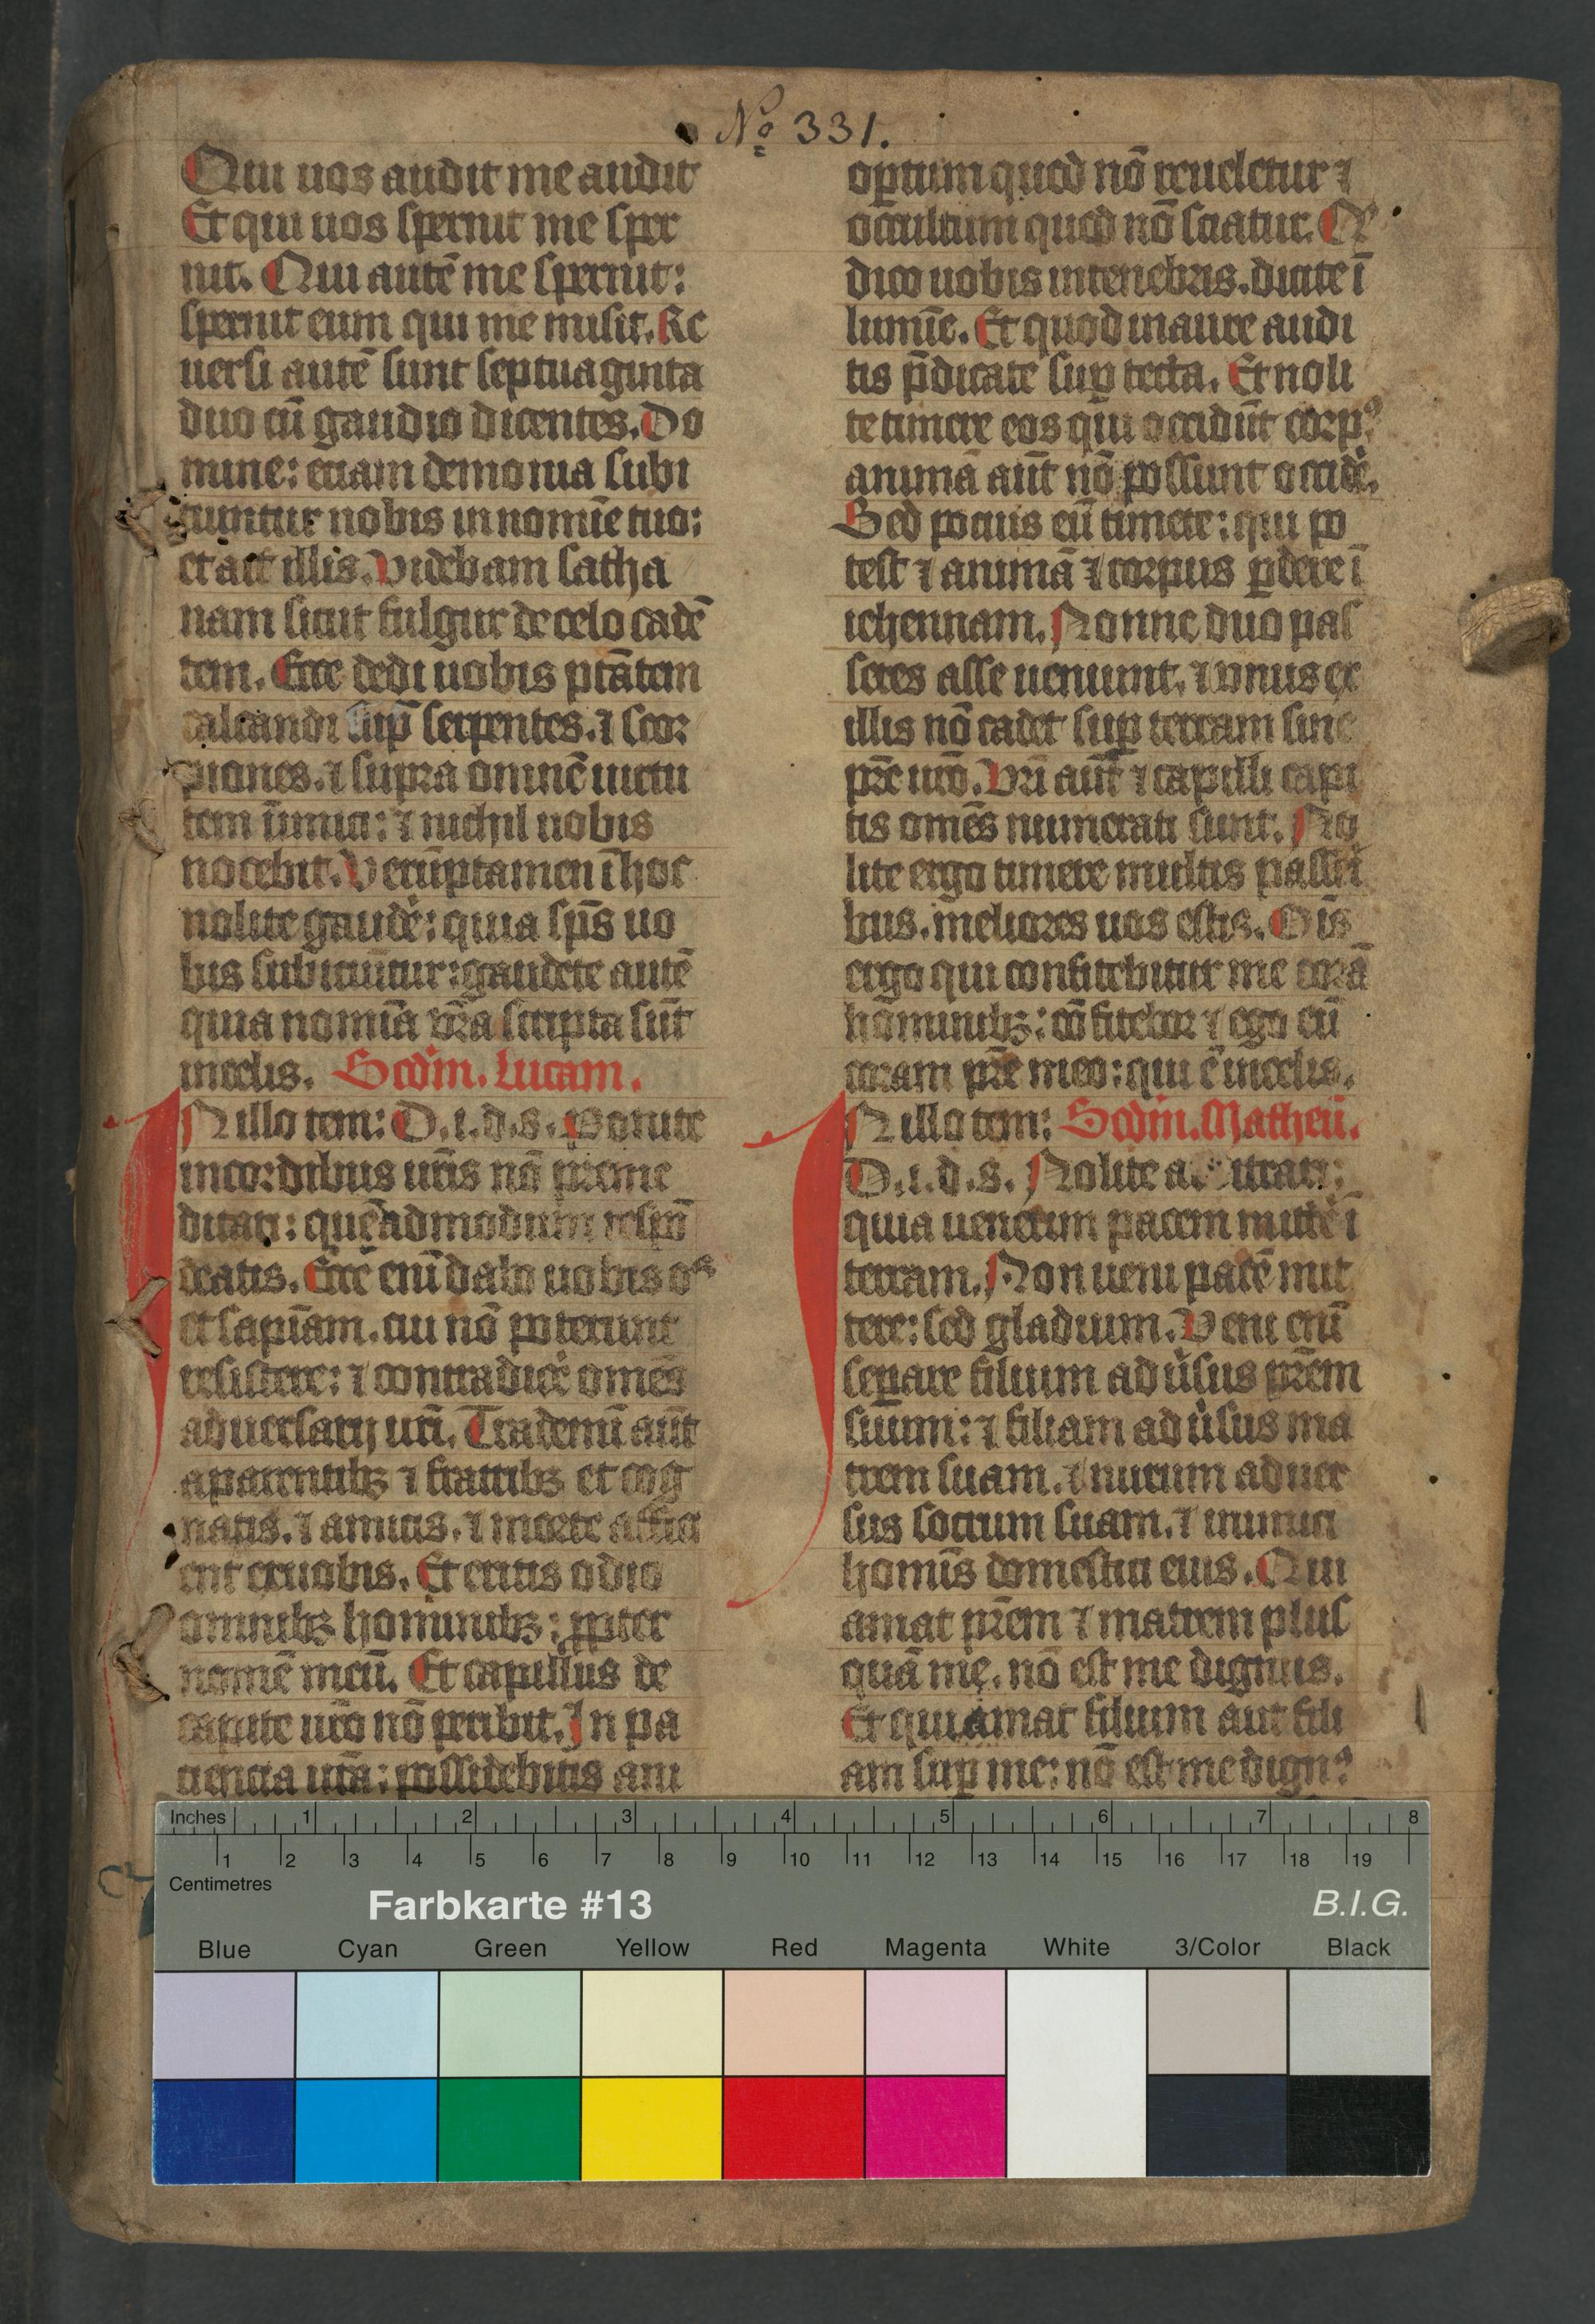 No 331.
Qui uos audit me audit
Et qui uos spernit me sper
nit. Qui autē me spernit:
spernit eum qui me misit. Re
uersi autē sunt septuaginta
duo cū gaudio dicentes. Do
mine: etiam demonia subi
ciuntur nobis in nomīe tuo:
et ait illis. Videbam satha
nam sicut fulgur de celo cadē
tem. Ecce dedi uobis ptātem
calcandi sup̄ serpentes. ⁊ scor
piones. ⁊ supra omnē uirtu
tem īimici: ⁊ nichil uobis
nocebit. Verūptamen ī hoc
nolite gaudē: quia sp̄s uo
bis subiciūtur: gaudete autē
quia nomīa vr̄a scripta sūt
in celis. Scdm̄. Lucam.
IN illo tem: D. i. d. s. Ponite
in cordibus ur̄is nō preme
ditari: quēadmodum respō
deatis. Ecce enī dabo uobis os
et sapīam. cui nō poterunt
resistere: ⁊ contradicē omēs
aduersarij ur̄i. Trademī aūt
a parentibꝫ ⁊ fratribꝫ et cog
natis. ⁊ amicis. ⁊ morte affici
ent ex uobis. Et eritis odio
omnibꝫ hominibꝫ: ꝓpter
nomē meū. Et capillus de
capite ur̄o nō peribit. In pa
tiencia ur̄a: possidebitis ani
optum quod nō reueletur ⁊
occultum quod nō sciatur. Q
dico uobis in tenebris. dicite ī
lumīe. Et quod in aure audi
tis p̄dicate suꝑ tecta. Et noli
te timere eos qui occidūt corpꝰ
animā aūt nō possunt occidē.
Sed pocius eū timete: qui po
test ⁊ animā ⁊ corpus ꝑdere ī
iehennam. Nonne duo pas
seres asse ueniunt. ⁊ vnus ex
illis nō cadet suꝑ terram sine
pr̄e ur̄o. Vr̄i aūt ⁊ capilli capi
tis omēs numerati sunt. No
lite ergo timere multis passeri
bus. meliores uos estis. Oīs
ergo qui confitebitur me corā
hominibꝫ: cōfitebor ⁊ ego eū
coram pr̄e meo: qui ē in celis.
IN illo tem: Scdm̄. Matheū.
D. i. d. s. Nolite
quia uenerim pacem mittē ī
terram. Non ueni pacē mit
tere: sed gladium. Veni enī
seꝑare filium aduˀsus pr̄em
suum: ⁊ filiam aduˀsus ma
trem suam. ⁊ nurum aduer
sus socrum suam. ⁊ inimici
homīs domestici eius. Qui
amat pr̄em ⁊ matrem plus
quā me. nō est me dignus.
Et qui amat filium aut fili
am suꝑ me: nō est me dignꝰ
Inches 1 2 3 4 5 6 7 8
1 2 3 4 5 6 7 8 9 10 11 12 13 14 15 16 17 18 19
Centimetres
Farbkarte #13 B.I.G.
Blue Cyan Green Yellow Red Magenta White 3/Color Black